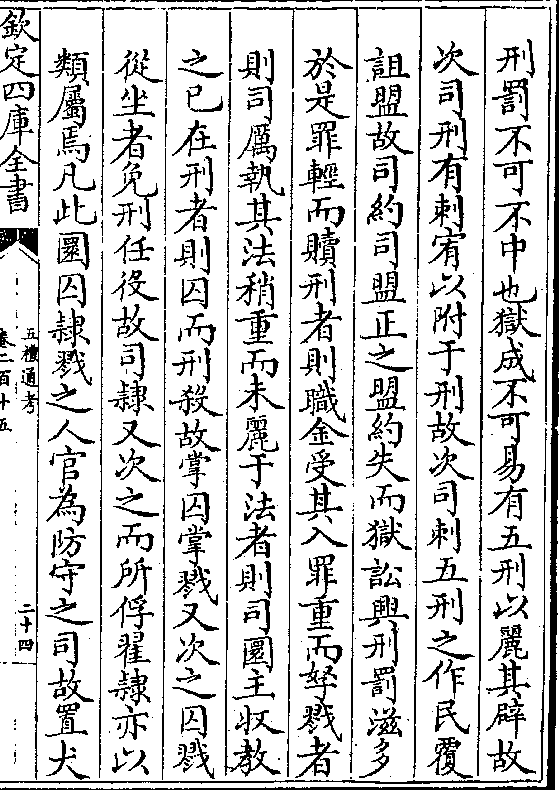 刑罰不可不中也獄成不可易有五刑以麗其辟故
次司刑有刺宥以附于刑故次司刺五刑之作民覆
詛盟故司約司盟正之盟約失而獄訟興刑罰滋多
於是罪輕而贖刑者則職金受其入罪重而孥戮者
則司厲執其法稍重而未麗于法者則司圜主收教
之已在刑者則囚而刑殺故掌囚掌戮又次之囚戮
從坐者免刑任役故司隸又次之而所俘翟隸亦以
類屬焉凡此圜囚隸戮之人官為防守之司故置犬
欽定四庫全書
五禮通考
卷二百十五
二十四